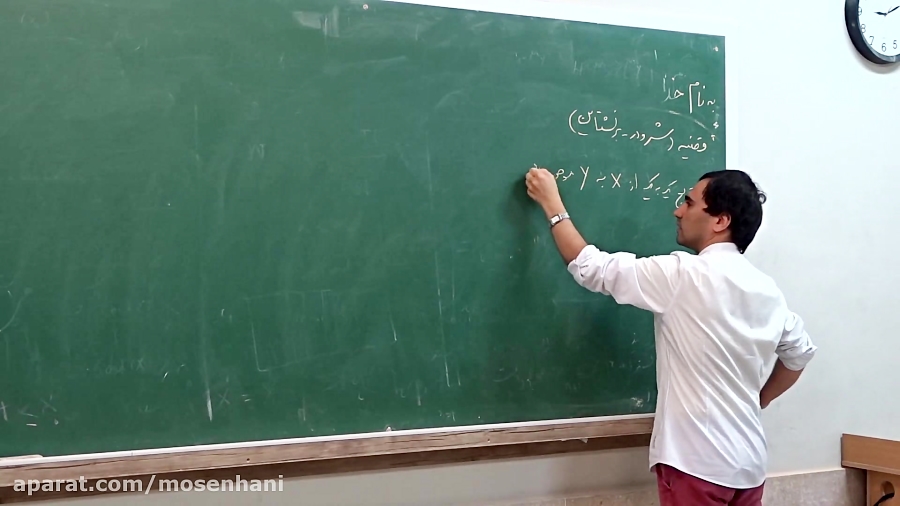 به نام خدا
قضیه (شرودر-برنشتاین)
یک به یک از X به Y
aparat.com/mosenhani